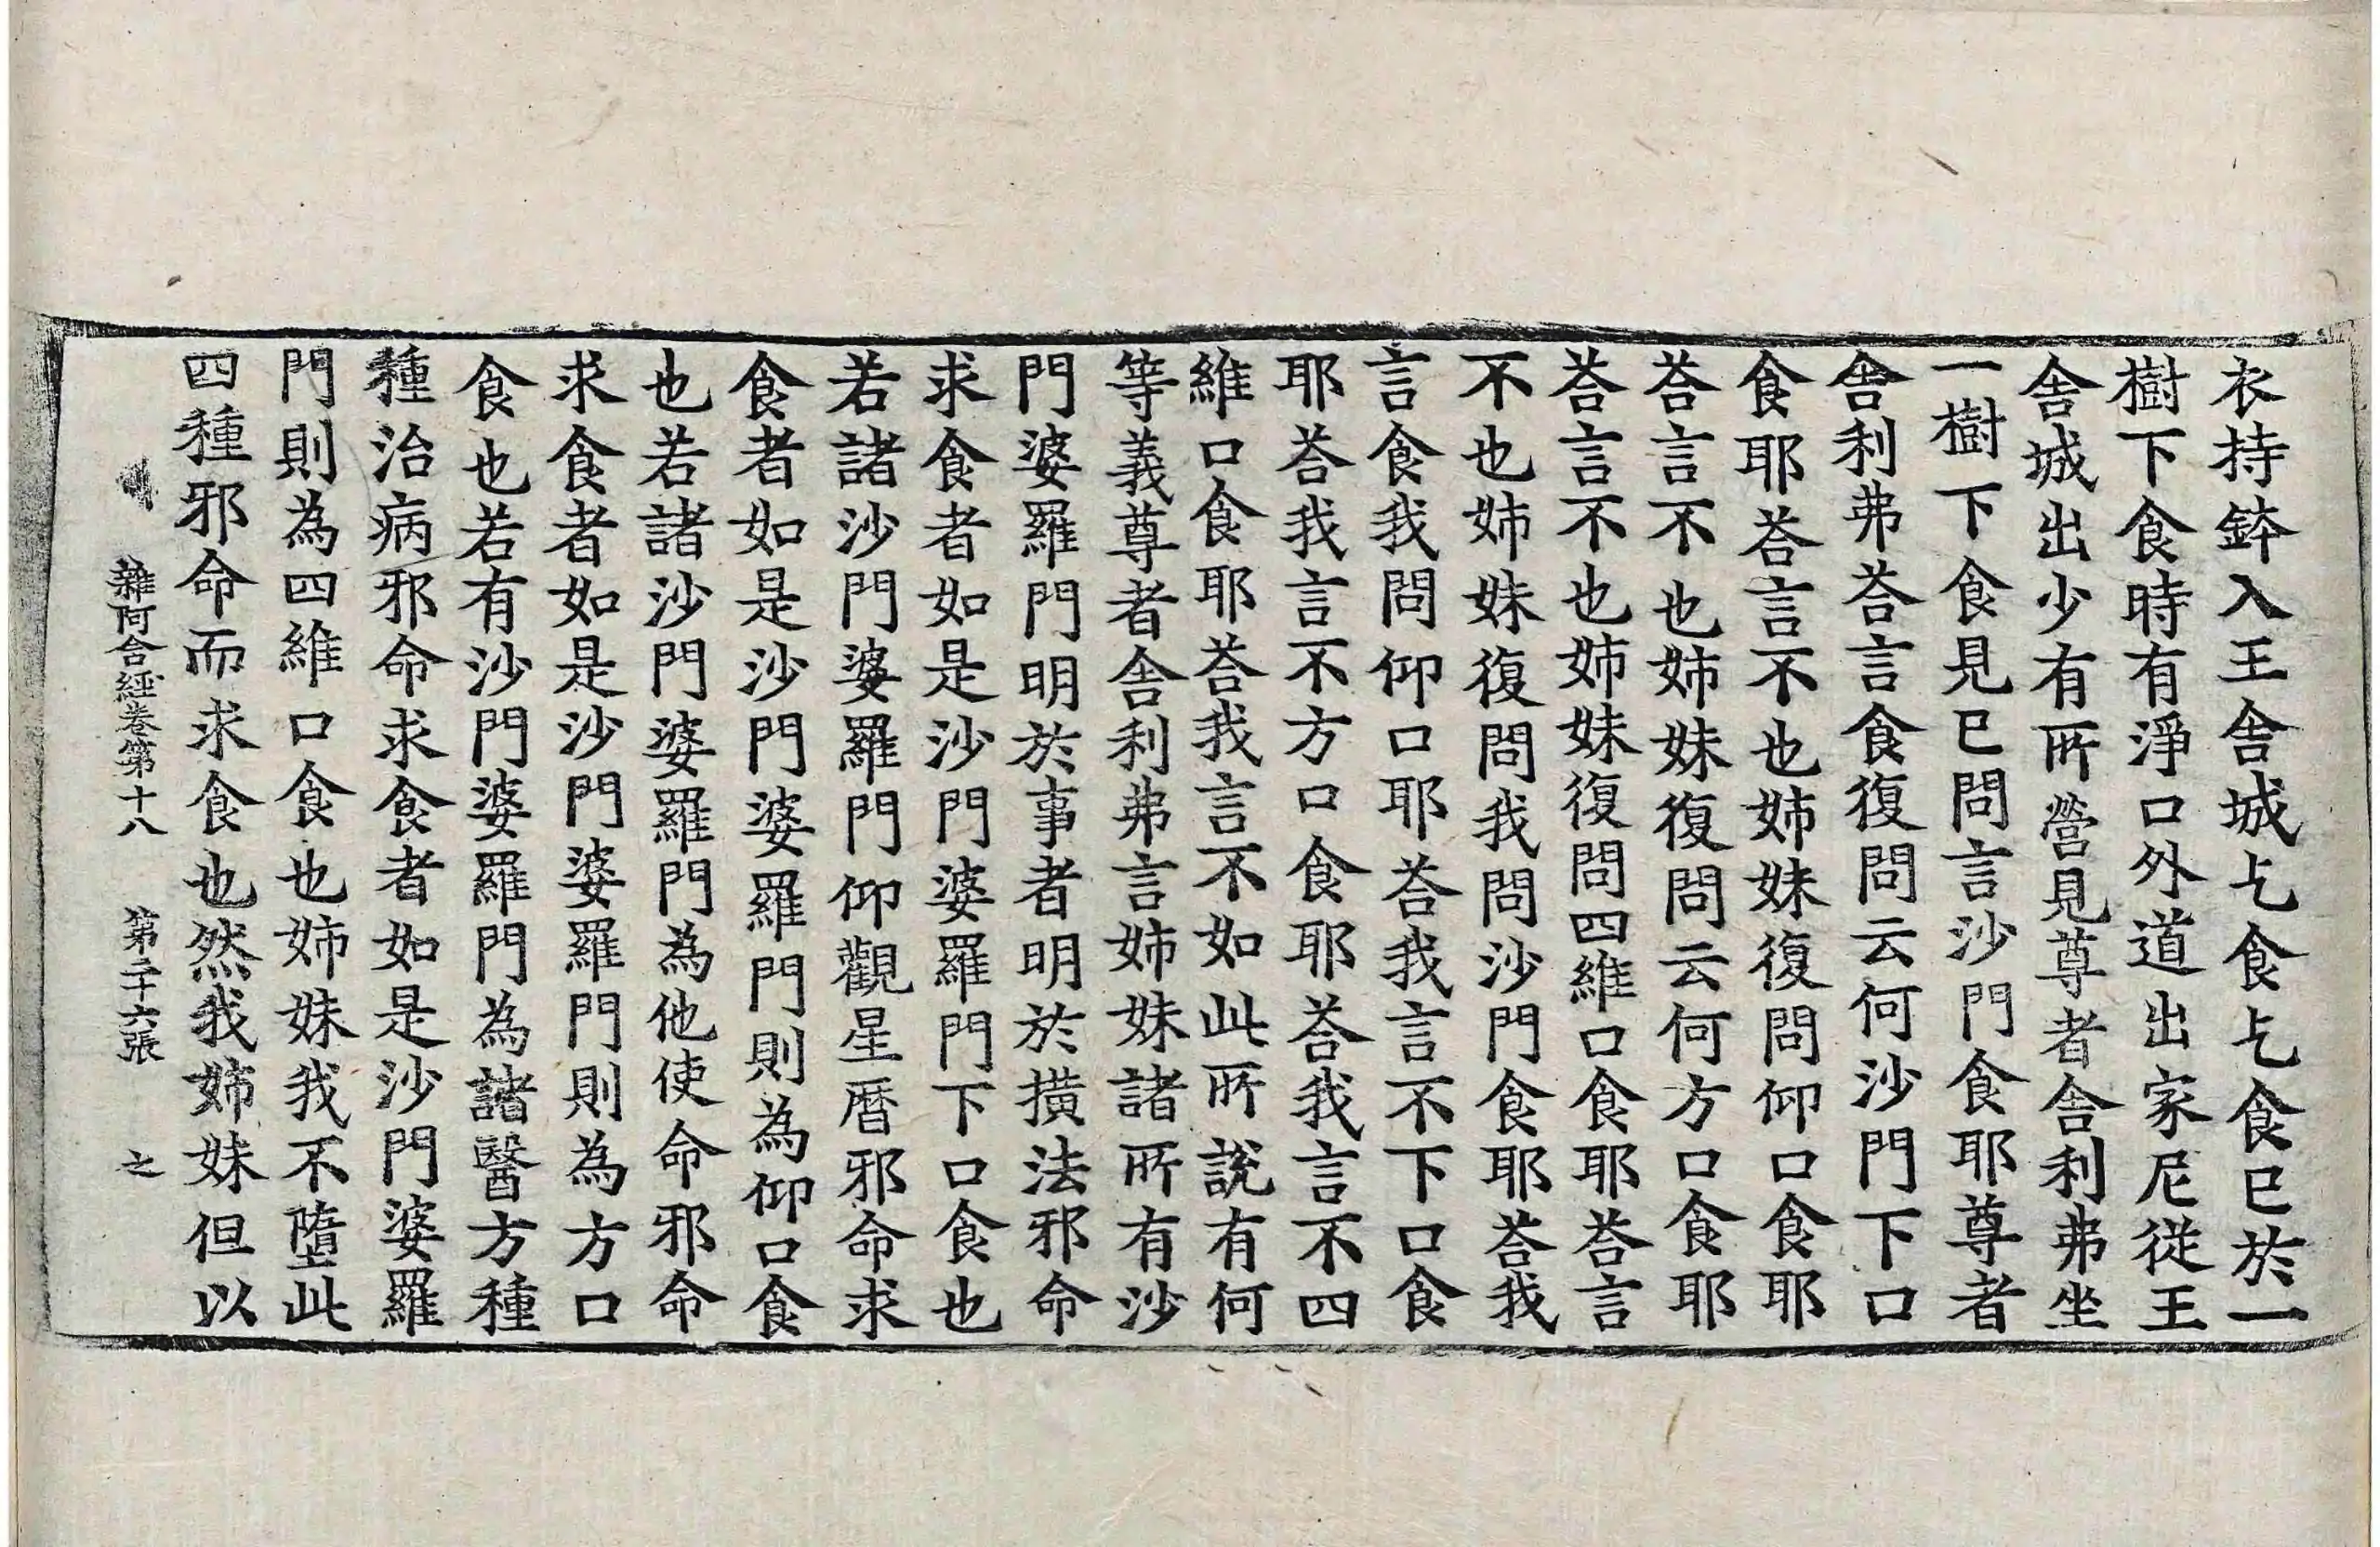 衣持鉢入王舎城乞食乞食已於一
樹下食時有淨口外道出家尼從王
舎城出少有所營見尊者舎利弗坐
一樹下食見已問言沙門食耶尊者
舎利弗荅言食復問云何沙門下口
食耶荅言不也姉妹復問仰口食耶
荅言不也姉妹復問云何方口食耶
荅言不也姉妹復問四維口食耶荅言
不也姉妹復問我問沙門食耶荅我
言食我問仰口耶荅我言不下口食
耶荅我言不方口食耶荅我言不四
維口食耶荅我言不如此所說有何
等義尊者舎利弗言姉妹諸所有沙
門婆羅門明於事者明於撗法邪命
求食者如是沙門婆羅門下口食也
若諸沙門婆羅門仰觀星曆邪命求
食者如是沙門婆羅門則為仰口食
也若諸沙門婆羅門為他使命邪命
求食者如是沙門婆羅門則為方口
食也若有沙門婆羅門為諸醫方種
種治病邪命求食者如是沙門婆羅
門則為四維口食也姉妹我不墮此
四種邪命而求食也然我姉妹但以
雜阿含經卷第十八 第二十六張 之